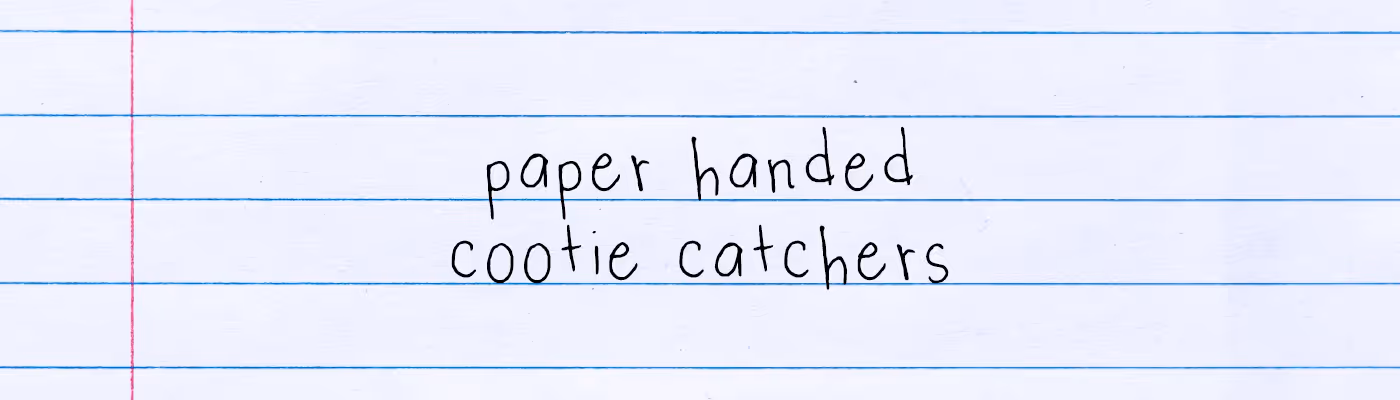 paper handed
cootie catchers